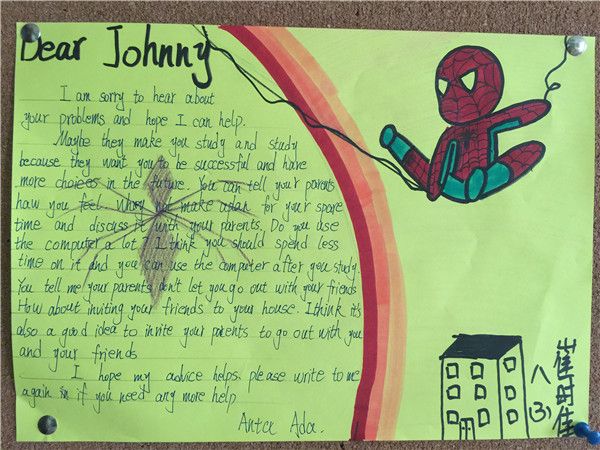 Dear Johnny
I am sorry to hear about
your problems and hope I can help.
Maybe they make you study and study
because they want you to be successful and have
more choices in the future. You can tell your parents
how you feel. Why not make a plan for your spare
time and discuss it with your parents. Do you use
the computer a lot? I think you should spend less
time on it and you can use the computer after you study.
You tell me your parents don't let you go out with your friends
How about inviting your friends to your house. I think it's
also a good idea to invite your parents to go out with you
and your friends
I hope my advice helps. please write to me
again if you need any more help
八(3)